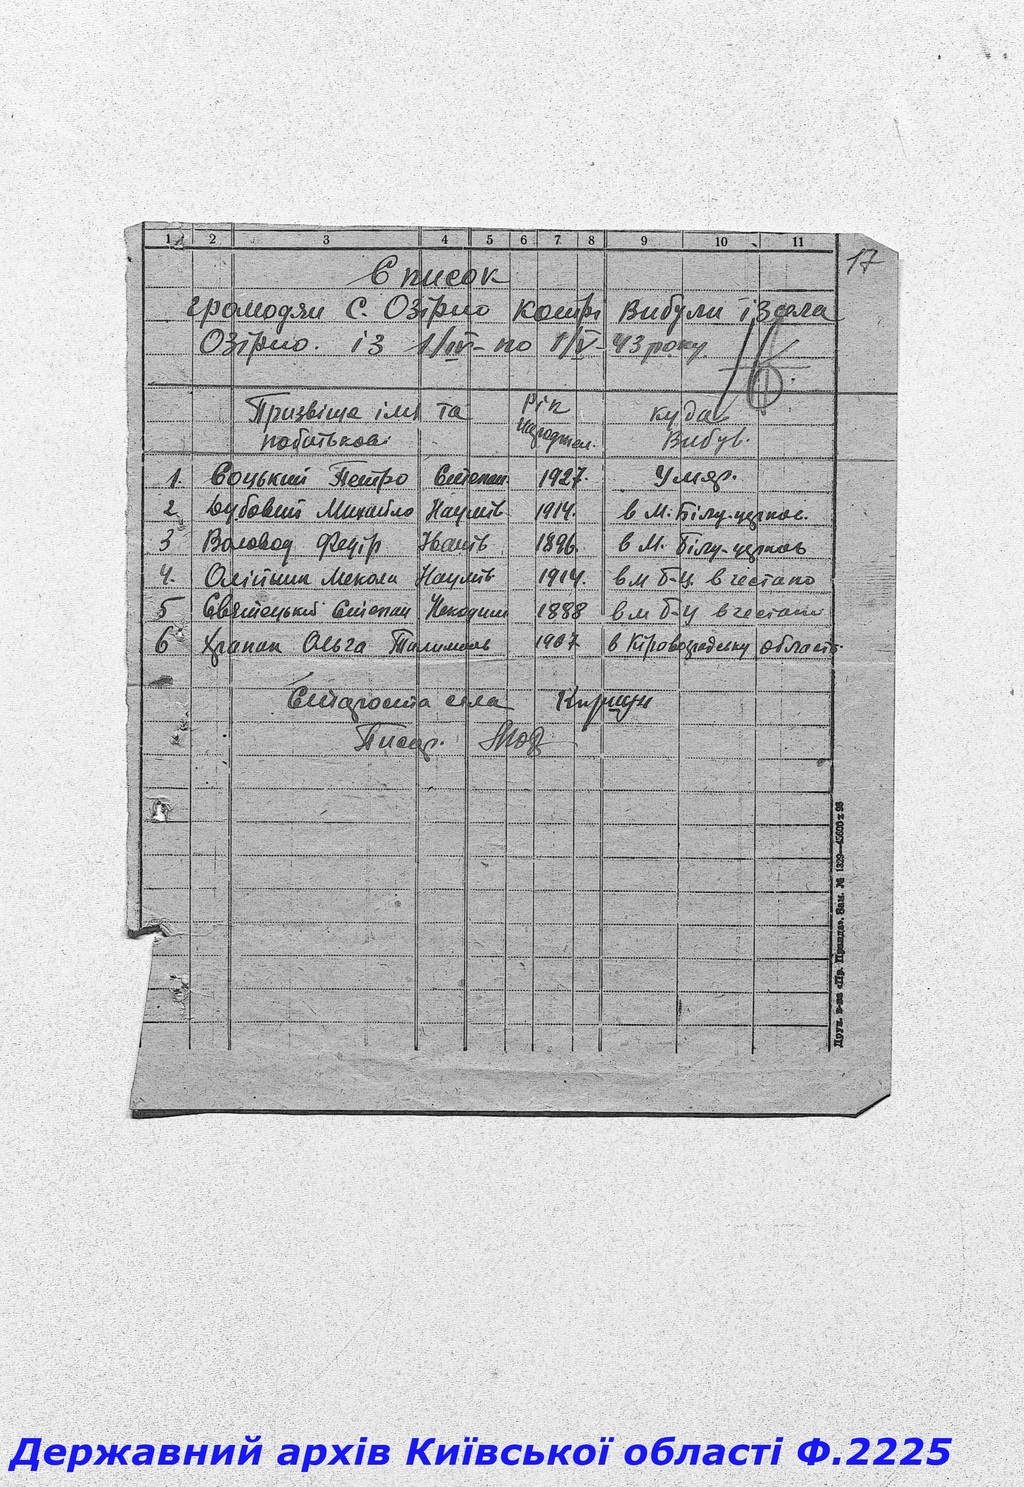 1 2 3 4 5 6 7 8 9 10 11
17
Список
громодян С. Озірно котрі Вибули із села
Озірно. із 1/IV - по 1/V - 43 року
Призвіще імя та Рік куда
побатькові народжен. Вибув.
1. Соцький Петро Степан. 1927. Умер.
2 Дубовий Михайло Наумів 1914. в М. Білу-церков.
3 Воловод Федір Іванів 1896. в М. Білу-церков
4. Олійник Мекола Наумів 1914. в м Б-Ц. в гестапо
5 Святецький Степан 1888 в м Б-Ц в гестапо
6 Храпак Ольга 1907 в Кіровоградську область
Староста села
Писар.
Друк. в-ва «Пр. Правда». Зак. № 1329—45600 х 98
Державний архів Київської області Ф.2225